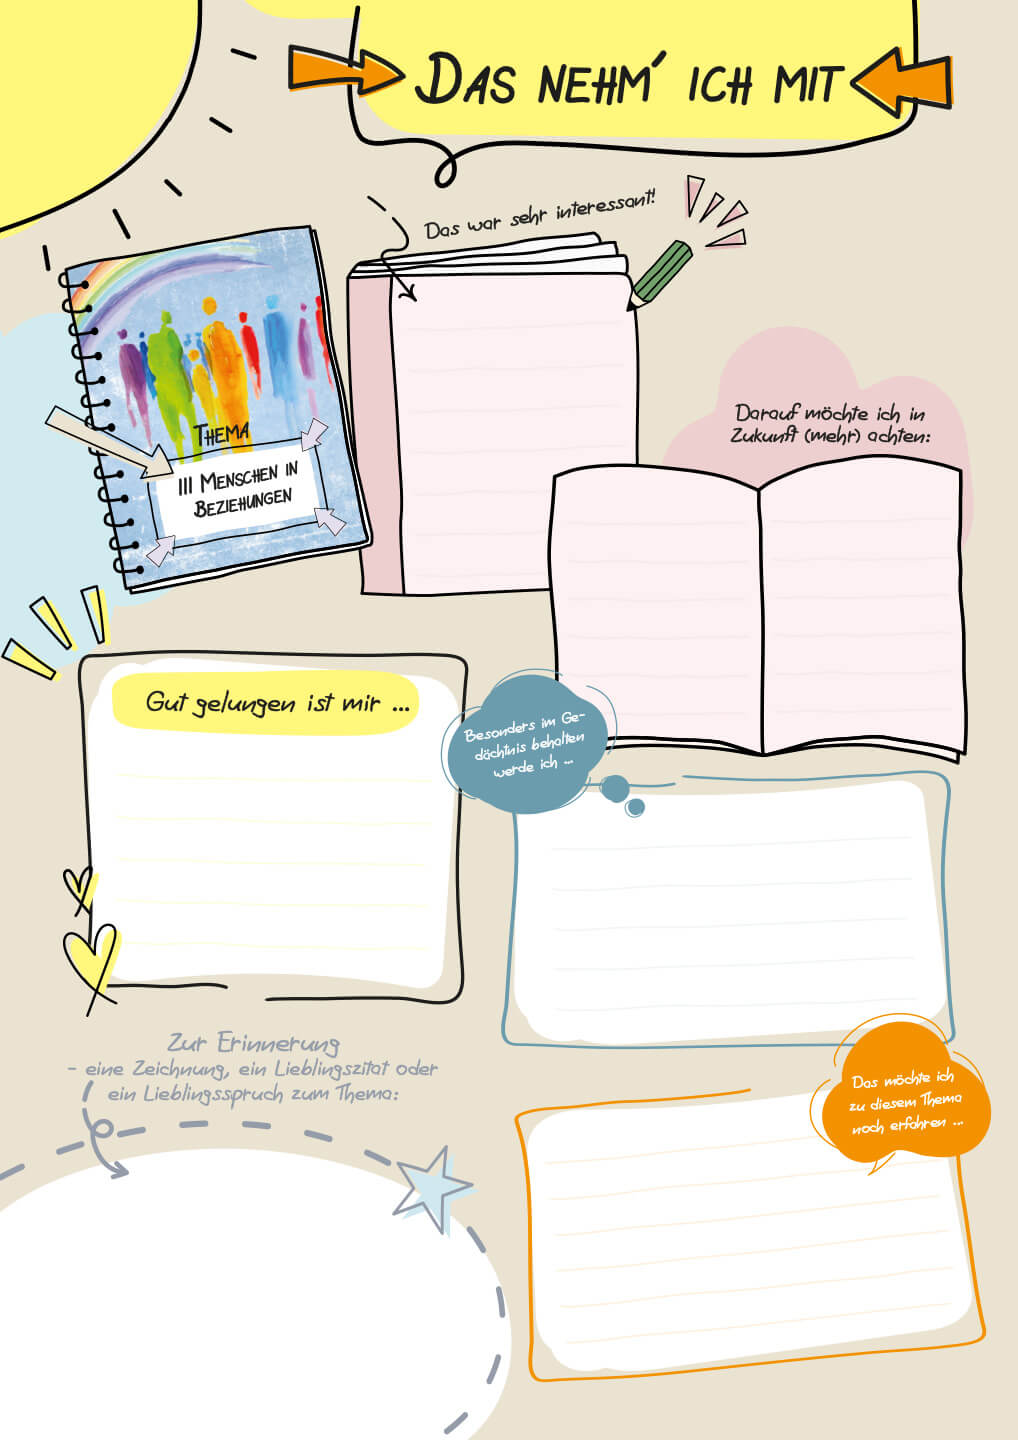 DAS NEHM´ ICH MIT
Das war sehr interessant!
THEMA
III MENSCHEN IN
BEZIEHUNGEN
Darauf möchte ich in
Zukunft (mehr) achten:
Gut gelungen ist mir ...
Besonders im Ge-
dächtnis behalten
werde ich ...
Zur Erinnerung
- eine Zeichnung, ein Lieblingszitat oder
ein Lieblingsspruch zum Thema:
Das möchte ich
zu diesem Thema
noch erfahren ...